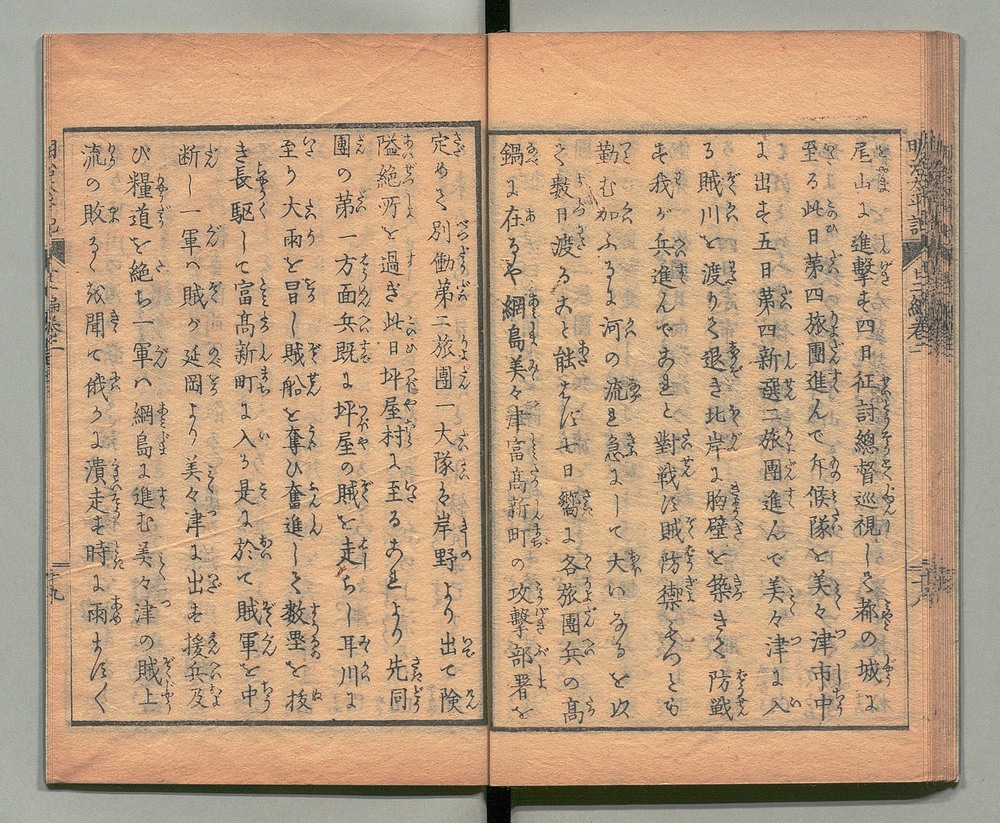 尾山に進撃す四日征討總督巡視して都の城に
至る此日第四旅團進んで斥候隊を美々津市中
に出す五日第四新選二旅團進んで美々津に入
る賊川を渡りて退き北岸に胸壁を築きて防戰
す我が兵進んでこれと對戦す賊防禦をつとむ
勤む加ふるに河の流れ急にして大いなるを以
て数日渡ること能はず七日嚮に各旅團兵の高
鍋に在るや綱島美々津富高新町の攻撃部署を
定めて別働第二旅團一大隊を岸野より出て険
隘絶所を過ぎ此日坪屋村に至るこれより先同
團の第一方面兵既に坪屋の賊を走らし耳川に
至り大雨を冒し賊船を奪ひ奮進して数塁を抜
き長駆して富高新町に入る是に於て賊軍を中
断し一軍ハ賊が延岡より美々津に出す援兵及
び糧道を絶ち一軍ハ綱島に進む美々津の賊上
流の敗るゝを聞て俄かに潰走す時に雨はげしく